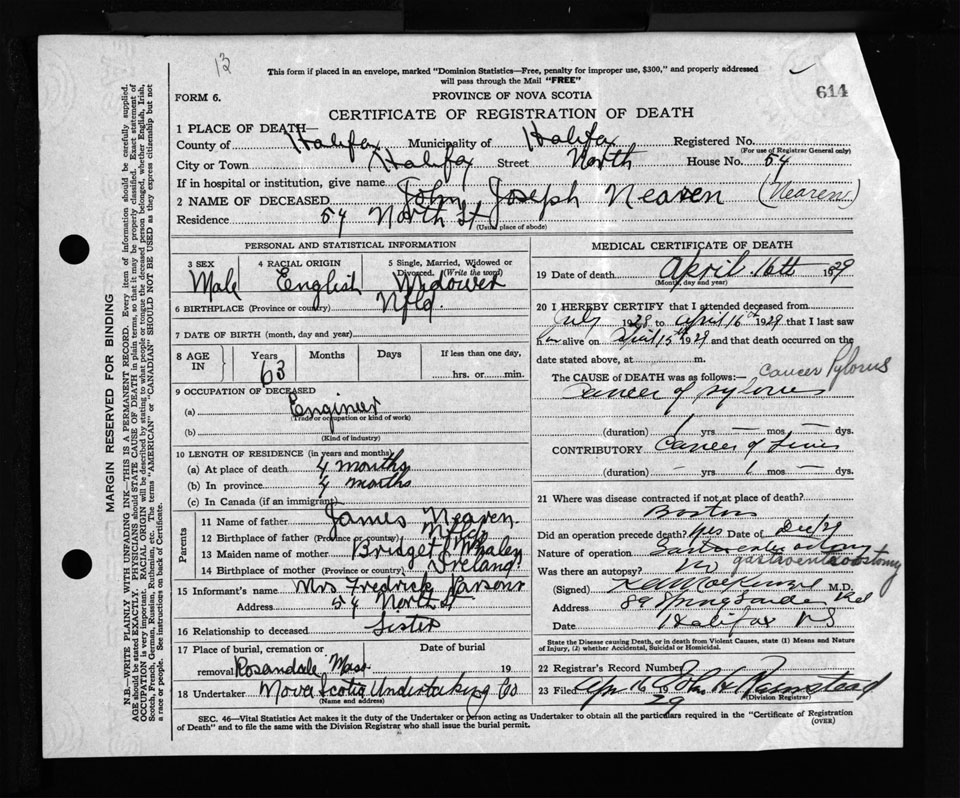 13
This form if placed in an envelope, marked "Dominion Statistics—Free, penalty for improper use, $300," and properly addressed
will pass through the Mail "FREE"
614
FORM 6.
PROVINCE OF NOVA SCOTIA
CERTIFICATE OF REGISTRATION OF DEATH
1 PLACE OF DEATH—
County of Halifax Municipality of Halifax Registered No.
(For use of Registrar General only)
City or Town Halifax Street North House No. 54
If in hospital or institution, give name
2 NAME OF DECEASED John Joseph Nearen (Nearen)
Residence 54 North St
(Usual place of abode)
PERSONAL AND STATISTICAL INFORMATION
3 SEX 4 RACIAL ORIGIN 5 Single, Married, Widowed or Divorced. (Write the word)
Male English Widower
6 BIRTHPLACE (Province or country) Nfld.
7 DATE OF BIRTH (month, day and year)
8 AGE IN Years Months Days If less than one day,
63 hrs. or min.
9 OCCUPATION OF DECEASED
(a) Enginer
(Trade or occupation or kind of work)
(b)
(Kind of industry)
10 LENGTH OF RESIDENCE (in years and months)
(a) At place of death 4 months
(b) In province 4 months
(c) In Canada (if an immigrant)
Parents
11 Name of father James Nearen
12 Birthplace of father (Province or country) Nfld
13 Maiden name of mother Bridget Whaley
14 Birthplace of mother (Province or country) Ireland
15 Informant's name Mrs Fredrick Parsons
Address 54 North St
16 Relationship to deceased Sister
17 Place of burial, cremation or removal Rosandale Mass Date of burial 19
18 Undertaker Nova Scotia Undertaking Co
(Name and address)
MEDICAL CERTIFICATE OF DEATH
19 Date of death April 16th 1929
(Month, day and year)
20 I HEREBY CERTIFY that I attended deceased from
July 1928 to April 16th 1929 that I last saw
him alive on April 15th 1929 and that death occurred on the
date stated above, at m.
The CAUSE OF DEATH was as follows:— Cancer Pylorus
Cancer of pylorus
(duration) 1 yrs. — mos. — dys.
CONTRIBUTORY Cancer of Liver
(duration) — yrs. 1 mos. — dys.
21 Where was disease contracted if not at place of death?
Boston
Did an operation precede death? yes Date of Dec/28
Nature of operation
gastroenterostomy
Was there an autopsy? no
(Signed) M.D.
Address 89 Spring Garden Rd
Date Halifax NS
State the Disease causing Death, or in death from Violent Causes, state (1) Means and Nature
of Injury, (11) whether Accidental, Suicidal or Homicidal.
22 Registrar's Record Number
23 Filed Apr 16 1929
(Division Registrar)
SEC. 46—Vital Statistics Act makes it the duty of the Undertaker or person acting as Undertaker to obtain all the particulars required in the "Certificate of Registration
of Death" and to file the same with the Division Registrar who shall issue the burial permit.
(OVER)
MARGIN RESERVED FOR BINDING
N.B.—WRITE PLAINLY WITH UNFADING INK—THIS IS A PERMANENT RECORD. Every item of information should be carefully supplied.
AGE should be stated EXACTLY. PHYSICIANS should STATE CAUSE OF DEATH in plain terms, so that it may be properly classified. Exact statement of
OCCUPATION is very important. RACIAL ORIGIN will be described by stating to what people or tongue the deceased person belonged, whether English, Irish,
Scotch, French, German, Russian, Ruthenian, etc. The terms "AMERICAN" or "CANADIAN" SHOULD NOT BE USED as they express citizenship but not
a race or people. See instructions on back of Certificate.